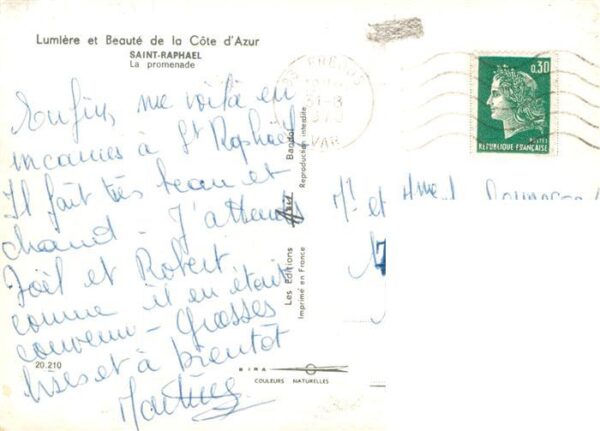 Lumière et Beauté de la Côte d'Azur
SAINT-RAPHAEL
La promenade
Enfin, me voilà en
vacances à St Raphaël
Il fait très beau et
chaud - J'attends
Joël et Robert
comme il en était
convenu - Grosses
bises et à bientôt
Martine
20.210
Les Editions Bandol
Imprimé en France
Reproduction interdite
COULEURS NATURELLES
FREJUS
31-8
VAR
0,30
POSTES
REPUBLIQUE FRANÇAISE
Mr et Mme